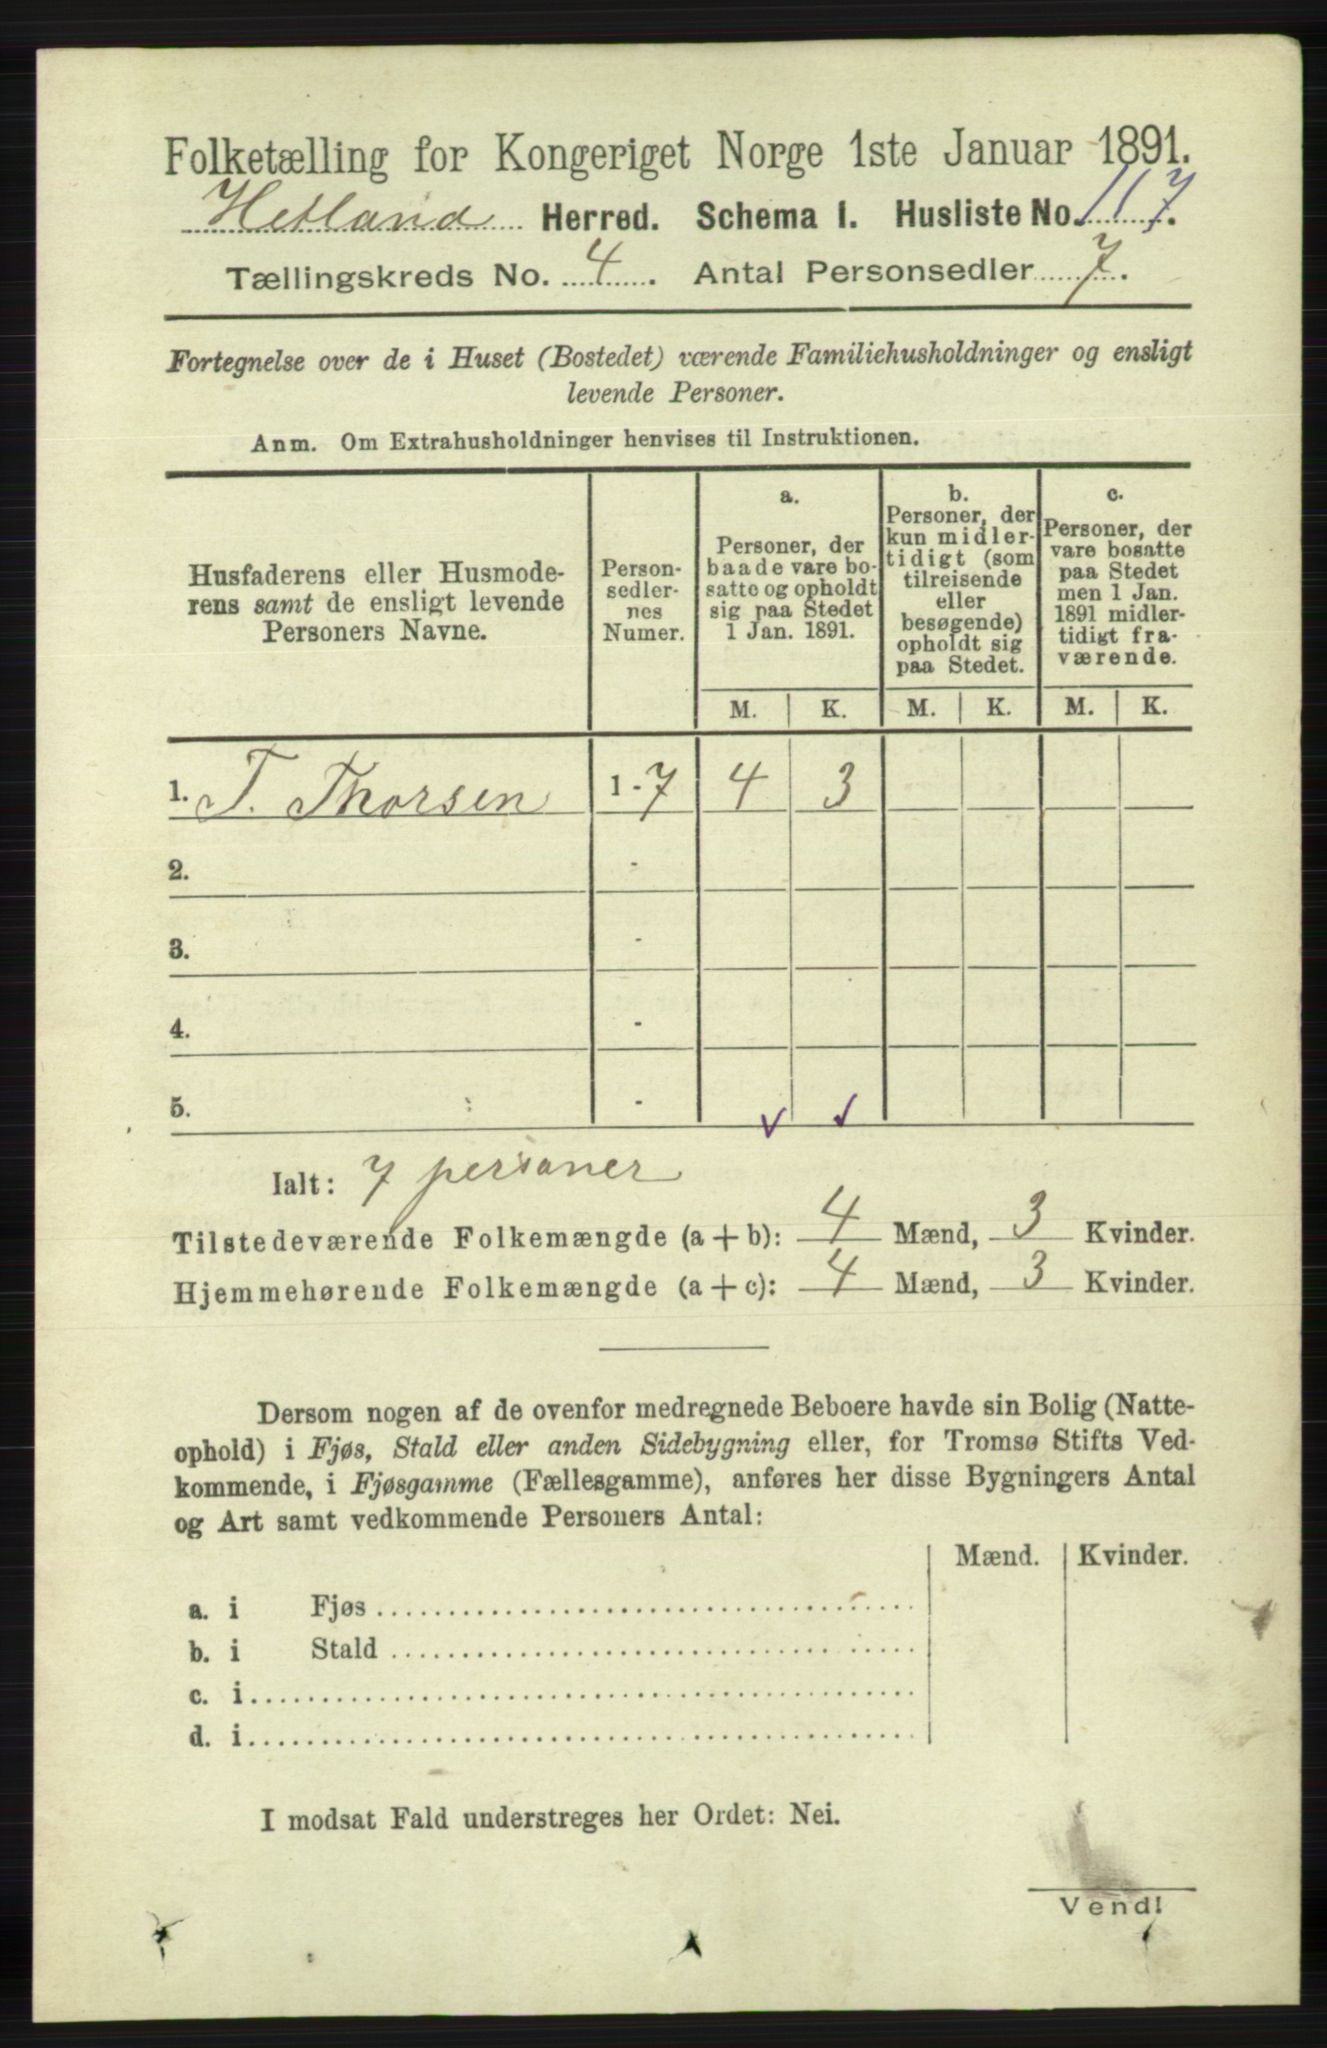 Folketælling for Kongeriget Norge 1ste Januar 1891.
Hetland Herred. Schema I. Husliste No. 117.
Tællingskreds No. 4. Antal Personsedler 7.
Fortegnelse over de i Huset (Bostedet) værende Familiehusholdninger og ensligt
levende Personer.
Anm. Om Extrahusholdninger henvises til Instruktionen.
Husfaderens eller Husmode-
rens samt de ensligt levende
Personers Navne.
Person-
sedler-
nes
Numer.
a.
Personer, der
baade vare bo-
satte og opholdt
sig paa Stedet
1 Jan. 1891.
b.
Personer, der
kun midler-
tidigt (som
tilreisende
eller
besøgende)
opholdt sig
paa Stedet.
c.
Personer, der
vare bosatte
paa Stedet
men 1 Jan.
1891 midler-
tidigt fra-
værende.
M. K. M. K. M. K.
1. T. Thorsen 1-7 4 3
2. -
3. -
4. -
5. -
Ialt: 7 personer
Tilstedeværende Folkemængde (a + b): 4 Mænd, 3 Kvinder.
Hjemmehørende Folkemængde (a + c): 4 Mænd, 3 Kvinder.
Dersom nogen af de ovenfor medregnede Beboere havde sin Bolig (Natte-
ophold) i Fjøs, Stald eller anden Sidebygning eller, for Tromsø Stifts Ved-
kommende, i Fjøsgamme (Fællesgamme), anføres her disse Bygningers Antal
og Art samt vedkommende Personers Antal:
Mænd. Kvinder.
a. i Fjøs
b. i Stald
c. i
d. i
I modsat Fald understreges her Ordet: Nei.
Vend!